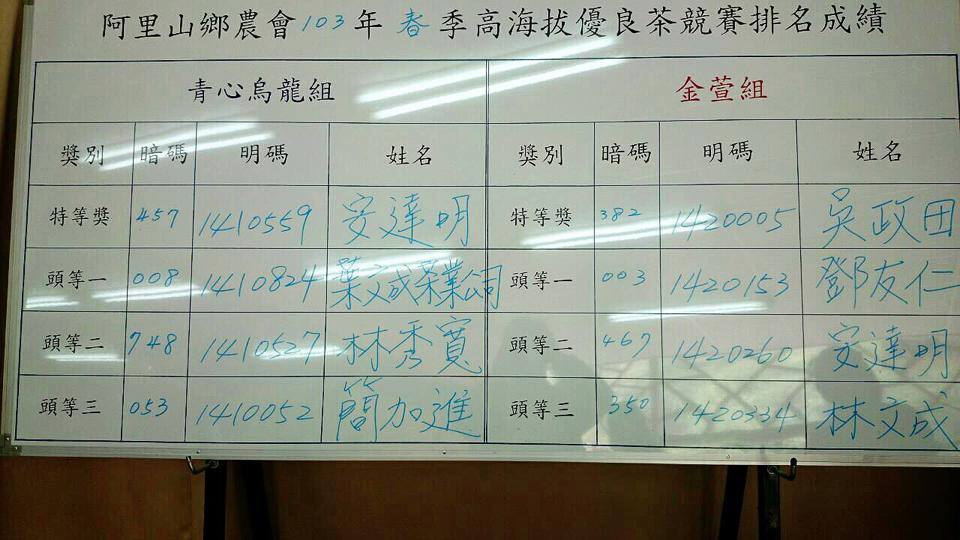 阿里山鄉農會103年春季高海拔優良茶競賽排名成績
青心烏龍組 金萱組
獎別 暗碼 明碼 姓名 獎別 暗碼 明碼 姓名
特等獎 457 1410559 安達明 特等獎 382 1420005 吳政田
頭等一 008 1410824 葉文成茶業公司 頭等一 003 1420153 鄧友仁
頭等二 748 1410527 林秀寬 頭等二 467 1420260 安達明
頭等三 053 1410052 簡加進 頭等三 350 1420334 林文成